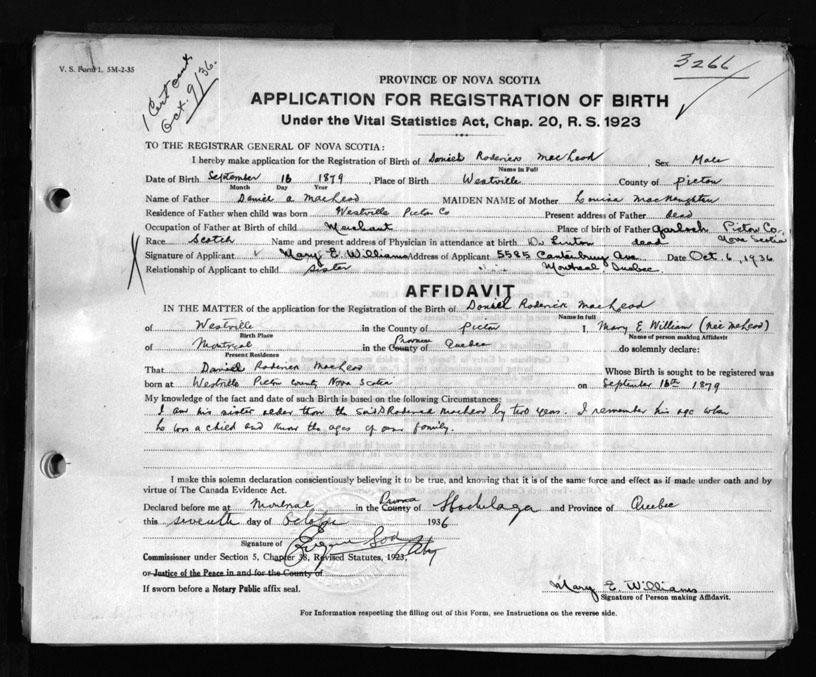 V. S. Form 1. 5M-2-35
1 Cert sent
Oct. 9/36.
3266
PROVINCE OF NOVA SCOTIA
APPLICATION FOR REGISTRATION OF BIRTH
Under the Vital Statistics Act, Chap. 20, R. S. 1923
TO THE REGISTRAR GENERAL OF NOVA SCOTIA:
I hereby make application for the Registration of Birth of Daniel Roderick MacLeod, Sex Male
Name in Full
Date of Birth September 16 1879, Place of Birth Westville County of Pictou
Month Day Year
Name of Father Daniel A MacLeod MAIDEN NAME of Mother Louise MacNaughton
Residence of Father when child was born Westville Pictou Co Present address of Father dead
Occupation of Father at Birth of child Merchant Place of birth of Father Garloch Pictou Co. Nova Scotia
Race Scotch Name and present address of Physician in attendance at birth Dr Linton dead
Signature of Applicant Mary E. Williams Address of Applicant 5585 Canterbury Ave Date Oct. 6, 1936
Relationship of Applicant to child sister Montreal Quebec.
AFFIDAVIT
IN THE MATTER of the application for the Registration of the Birth of Daniel Roderick MacLeod
Name in Full
of Westville in the County of Pictou I, Mary E William (nee McLeod)
Birth Place Name of person making Affidavit
of Montreal in the County Province of Quebec do solemnly declare:
Present Residence
That Daniel Roderick MacLeod Whose Birth is sought to be registered was
born at Westville Pictou County Nova Scotia on September 16th 1879
My knowledge of the fact and date of such Birth is based on the following Circumstances:
I am his sister older than the said D Roderick MacLeod by two years. I remember his age when
he was a child and know the ages of our family.
I make this solemn declaration conscientiously believing it to be true, and knowing that it is of the same force and effect as if made under oath and by
virtue of The Canada Evidence Act.
Declared before me at Montreal in the County of Hochelaga and Province of Quebec
this seventh day of October 1936
Signature of
Commissioner under Section 5, Chapter 38, Revised Statutes, 1923,
or Justice of the Peace in and for the County of
If sworn before a Notary Public affix seal.
Mary E. Williams
Signature of Person making Affidavit.
For Information respecting the filling out of this Form, see Instructions on the reverse side.